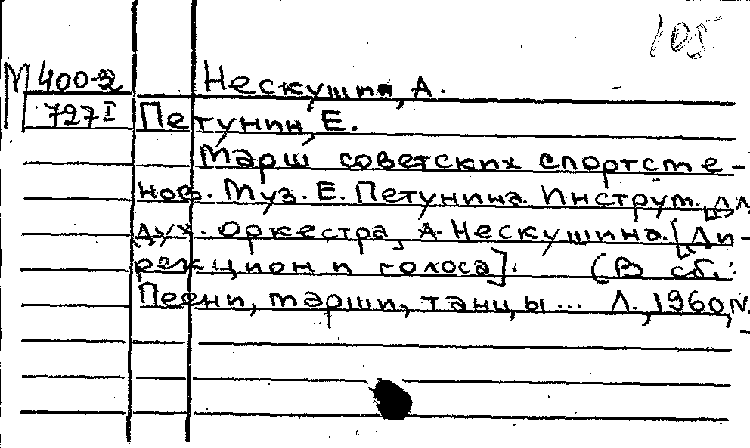 105
М 400-2 Нескушин, А.
727 I Петунин, Е.
Марш советских спортсме-
нов. Муз. Е. Петунина. Инструм. для
дух. оркестра А. Нескушина. [Ди-
рекцион и голоса]. (В сб.:
Песни, марши, танцы... Л., 1960, №